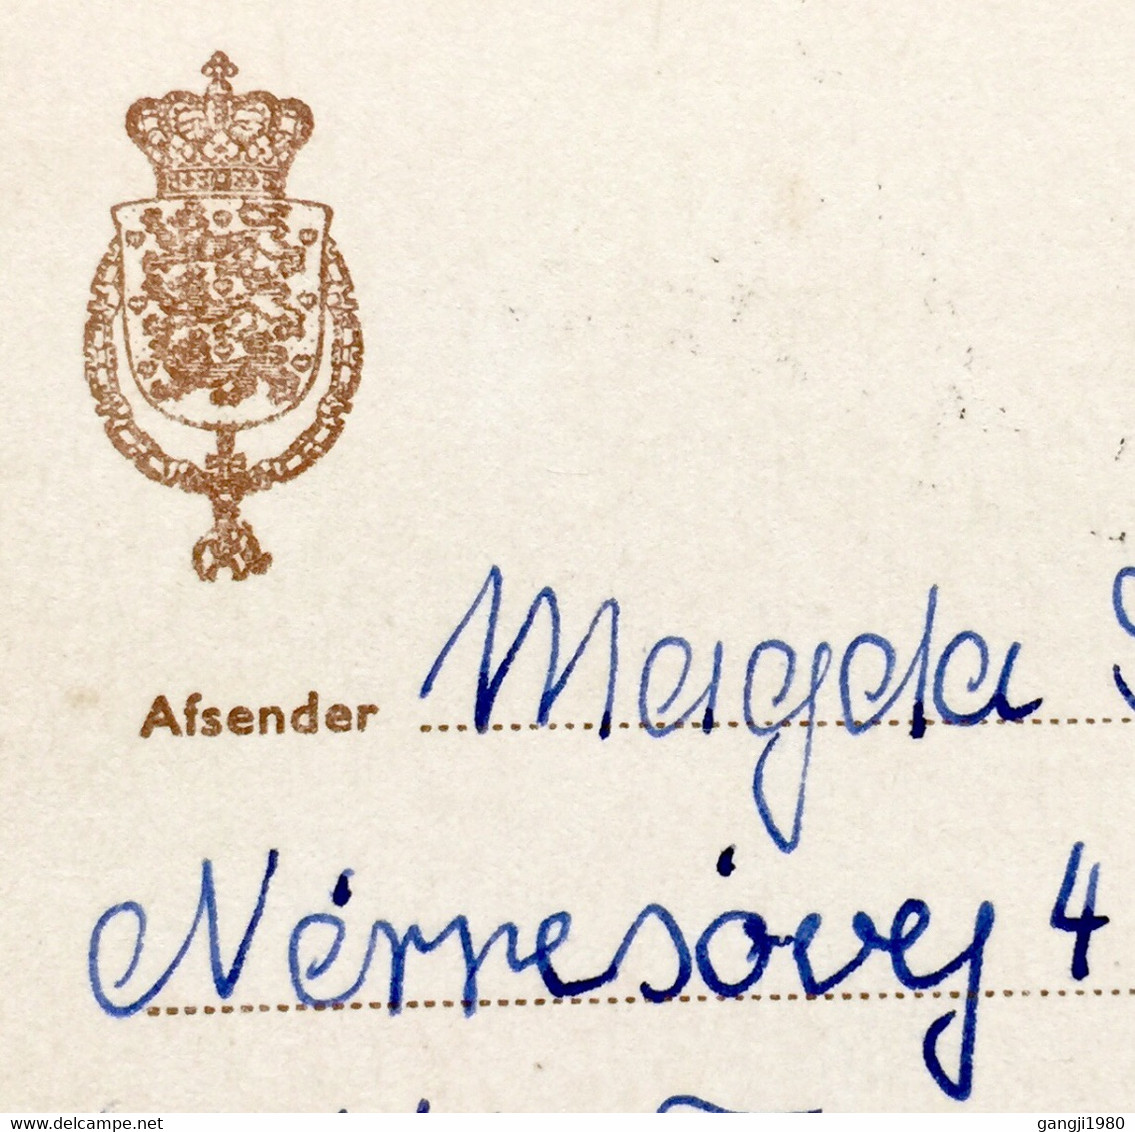 Afsender Magda
Nórresóvej 4
delcampe.net
gangji1980